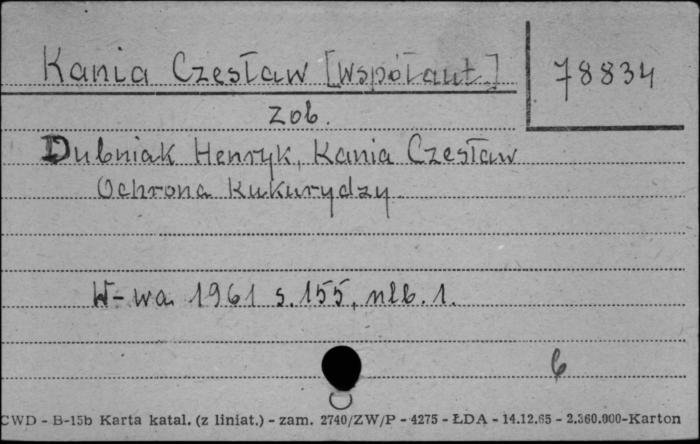 Kania Czesław [współaut.]
78834
zob.
Dubniak Henryk, Kania Czesław
Ochrona kukurydzy.
W-wa 1961 s. 155, nlb. 1.
6
CWD - B-15b Karta katal. (z liniat.) - zam. 2740/ZW/P - 4275 - ŁDA - 14.12.65 - 2.360.000-Karton